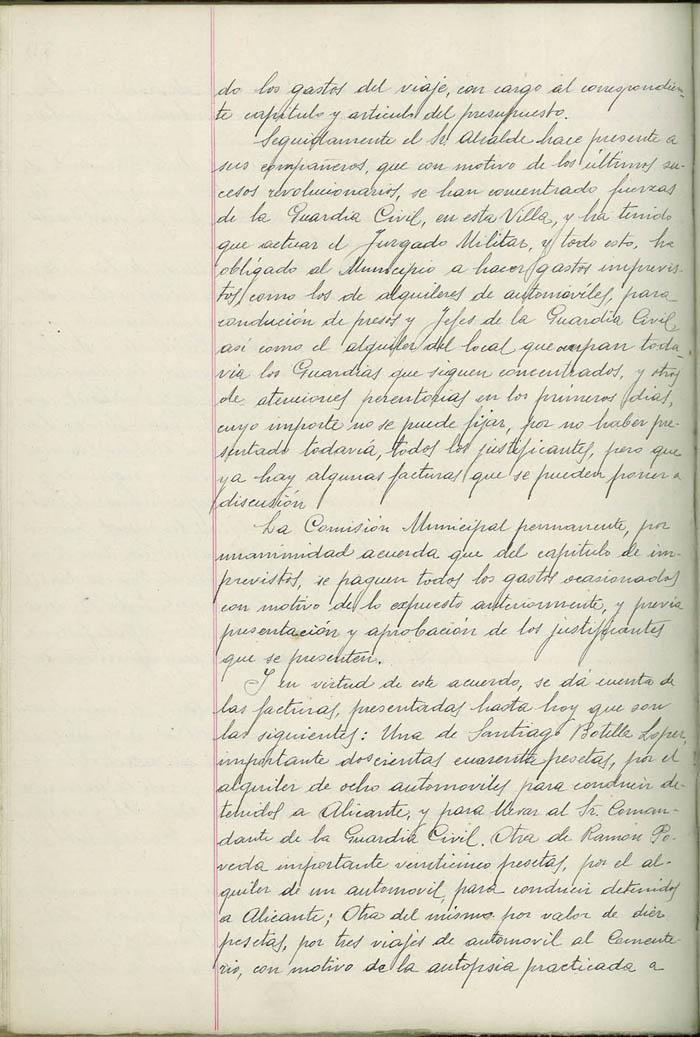 do los gastos del viaje, con cargo al correspondien-
te capítulo y articulo del presupuesto.
Seguidamente el Sr. Alcalde hace presente a
sus compañeros, que con motivo de los últimos su-
cesos revolucionarios, se han concentrado fuerzas
de la Guardia Civil, en esta Villa, y ha tenido
que actuar el Juzgado Militar, y todo esto, ha
obligado al Municipio a hacer gastos imprevis-
tos, como los de alquileres de automoviles, para
condución de presos y Jefes de la Guardia Civil,
asi como el alquiler del local que ocupan toda-
via los Guardias que siguen concentrados, y otros
de atenciones perentorias en los primeros dias,
cuyo importe no se puede fijar, por no haber pre-
sentado todavia, todos los justificantes, pero que
ya hay algunas facturas que se pueden poner a
discusión
La Comisión Municipal permanente, por
unanimidad acuerda que del capitulo de im-
previstos, se paguen todos los gastos ocasionados
con motivo de lo expuesto anteriormente, y previa
presentación y aprobación de los justificantes
que se presenten.
Y en virtud de este acuerdo, se dá cuenta de
las facturas, presentadas hasta hoy que son
las siguientes: Una de Santiago Botella Loper,
importante doscientas cuarenta pesetas, por el
alquiler de ocho automoviles para conducir de-
tenidos a Alicante, y para llevar al Sr. Coman-
dante de la Guardia Civil. Otra de Ramón Po-
veda importante veinticinco pesetas, por el al-
quiler de un automovil, para conducir detenidos
a Alicante; Otra del mismo por valor de diez
pesetas, por tres viajes de automovil al Cemente-
rio, con motivo de la autopsia practicada a